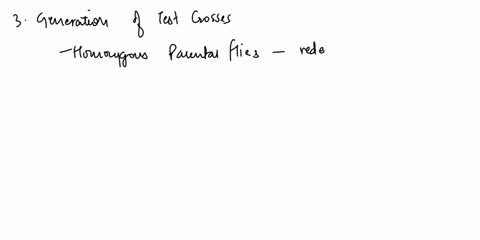 3. Generation of Test Crosses
- Homozygous Parental flies - rede